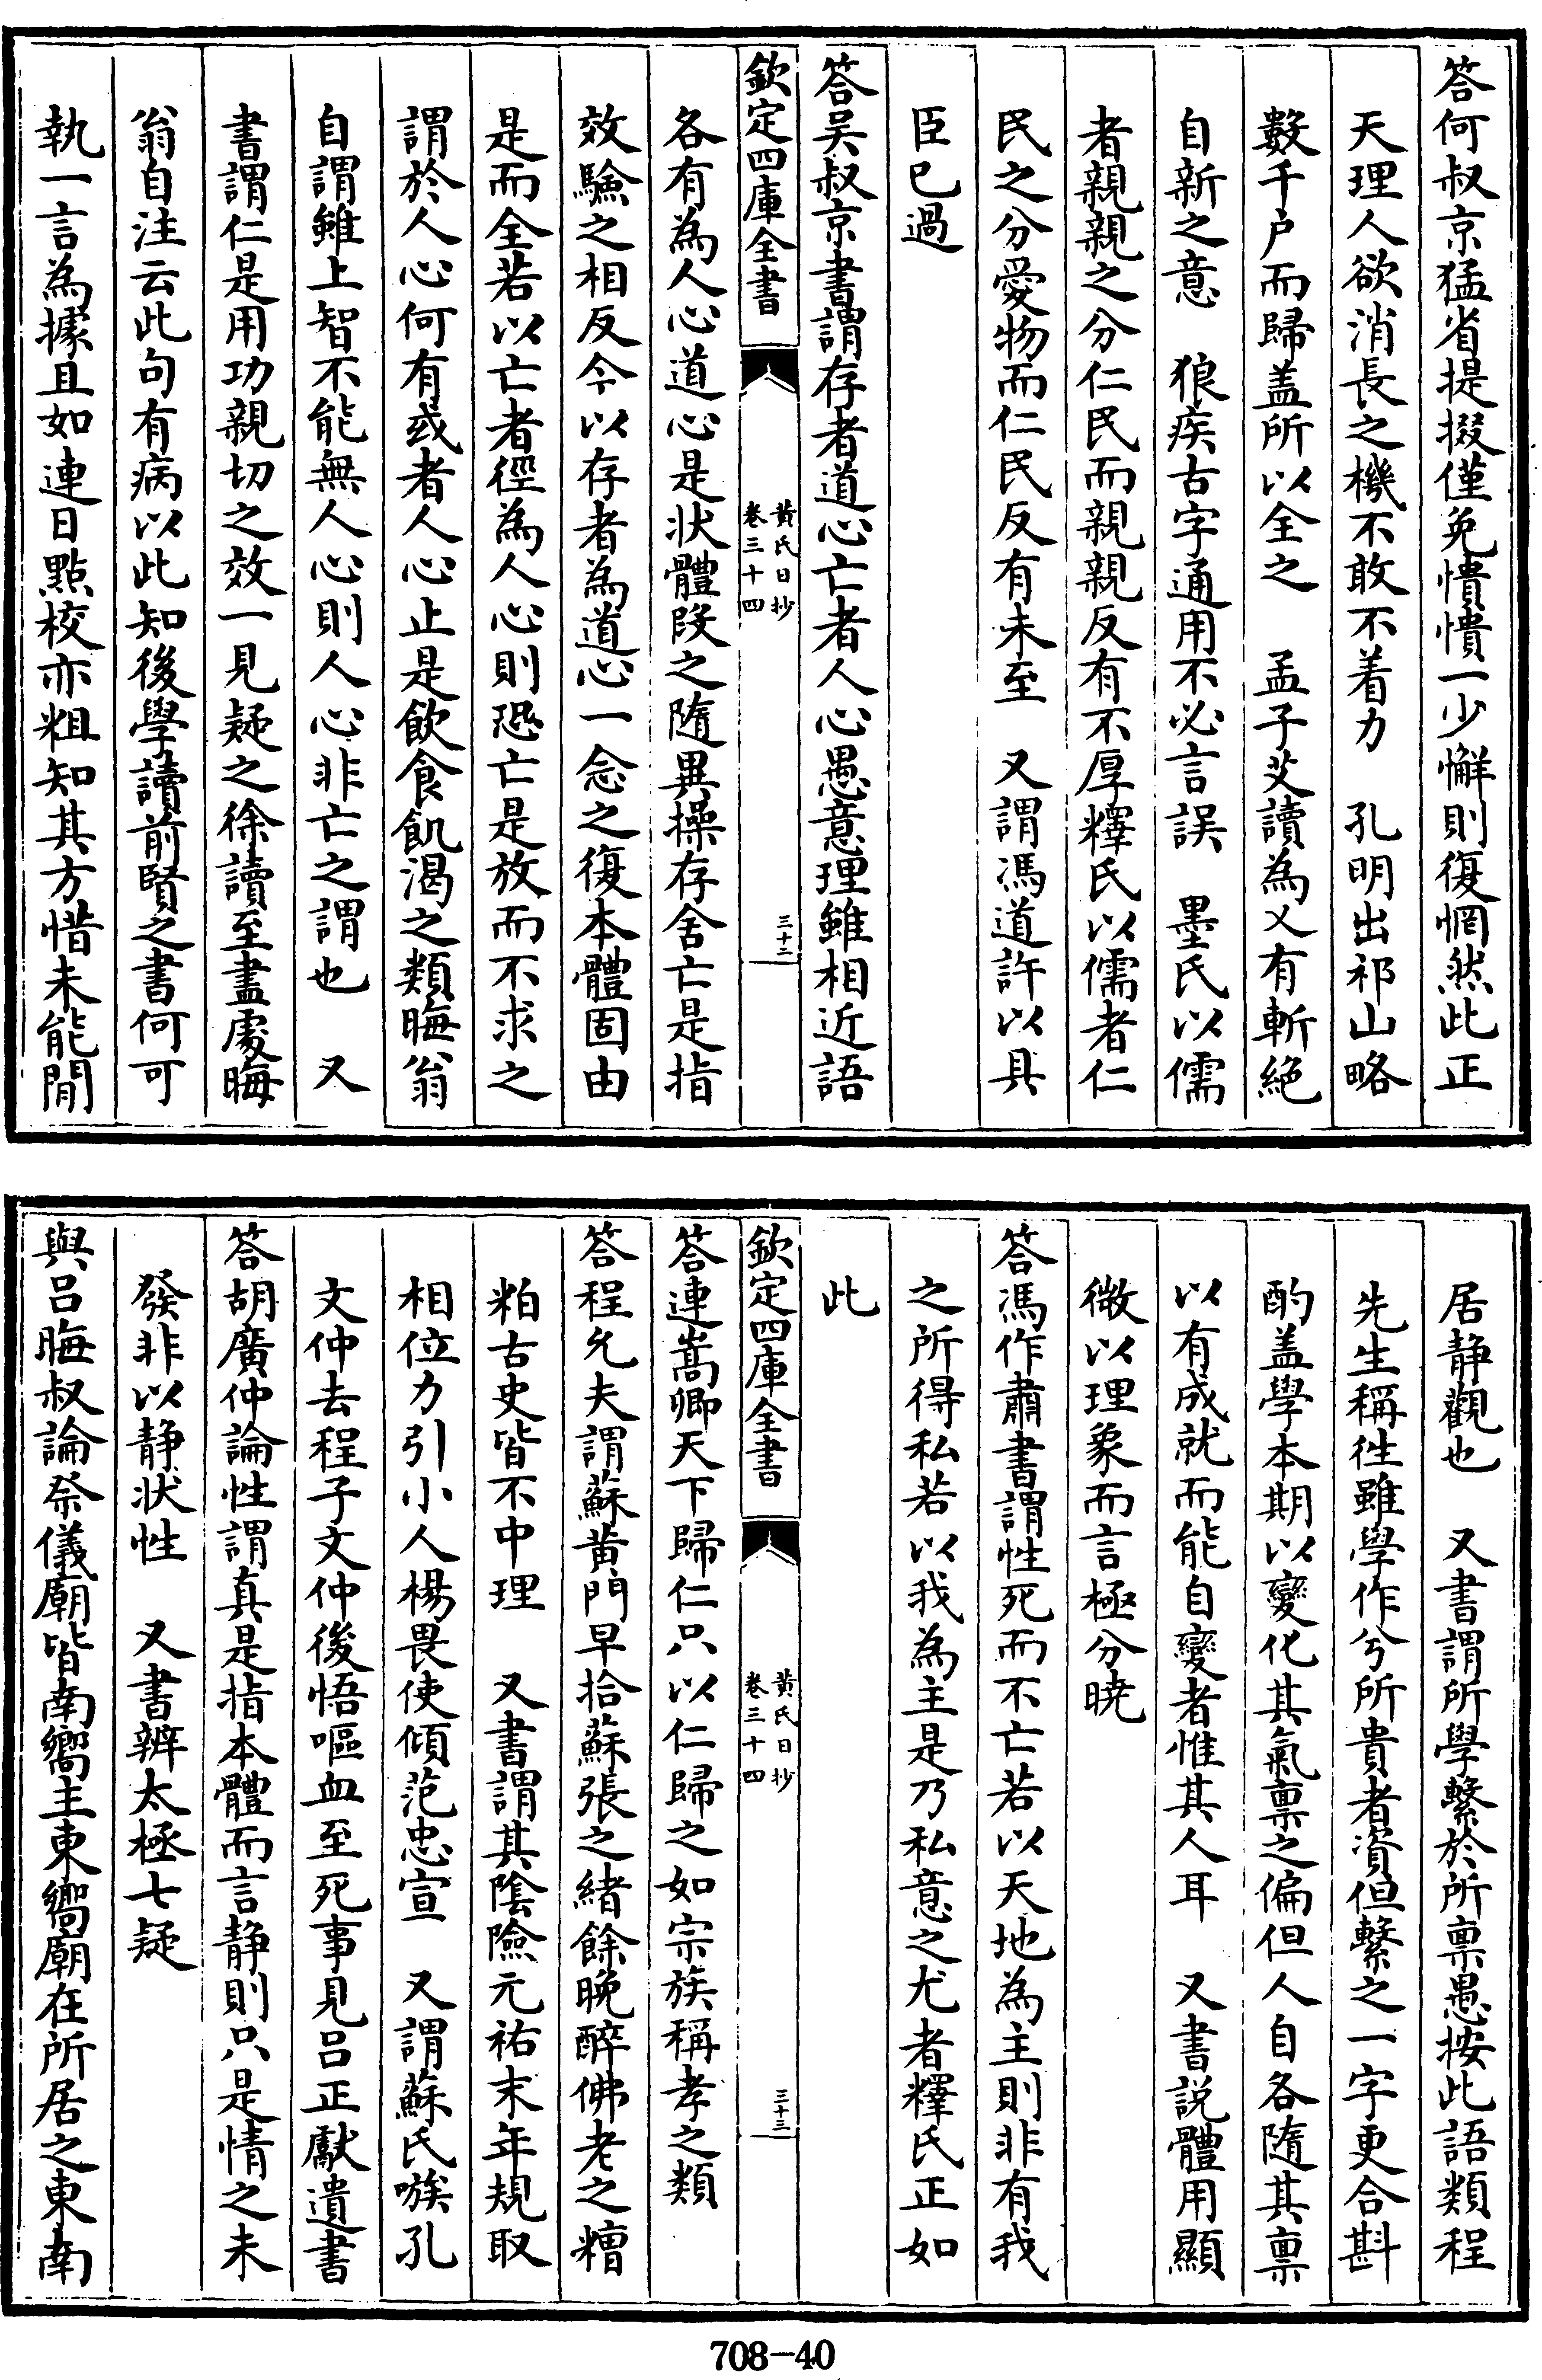 答何叔京猛省提掇僅免憒憒一少懈則復惘然此正
天理人欲消長之機不敢不着力　孔明出祁山略
數千户而歸盖所以全之　孟子艾讀為乂有斬絕
自新之意　狼疾古字通用不必言誤　墨氏以儒
者親親之分仁民而親親反有不厚釋氏以儒者仁
民之分愛物而仁民反有未至　又謂馮道許以具
臣已過
答吴叔京書謂存者道心亡者人心愚意理雖相近語
欽定四庫全書
黄氏日抄
卷三十四
三十二
各有為人心道心是狀體段之隨異操存舍亡是指
效驗之相反今以存者為道心一念之復本體固由
是而全若以亡者徑為人心則恐亡是放而不求之
謂於人心何有或者人心止是飲食飢渴之類晦翁
自謂雖上智不能無人心則人心非亡之謂也　又
書謂仁是用功親切之效一見疑之徐讀至盡處晦
翁自注云此句有病以此知後學讀前賢之書何可
執一言為據且如連日點校亦粗知其方惜未能閒
居静觀也　又書謂所學繫於所禀愚按此語類程
先生稱徃雖學作兮所貴者資但繫之一字更合斟
酌盖學本期以變化其氣禀之偏但人自各隨其禀
以有成就而能自變者惟其人耳　又書説體用顯
微以理象而言極分暁
答馮作肅書謂性死而不亡若以天地為主則非有我
之所得私若以我為主是乃私意之尤者釋氏正如
此
欽定四庫全書
黄氏日抄
卷三十四
三十三
答連嵩卿天下歸仁只以仁歸之如宗族稱孝之類
答程允夫謂蘇黄門早拾蘇張之緒餘晚醉佛老之糟
粕古史皆不中理　又書謂其陰險元祐末年規取
相位力引小人楊畏使傾范忠宣　又謂蘇氏嗾孔
文仲去程子文仲後悟嘔血至死事見吕正獻遺書
答胡廣仲論性謂真是指本體而言静則只是情之未
發非以静狀性　又書辨太極七疑
與吕晦叔論祭儀廟皆南嚮主東嚮廟在所居之東南
708-40